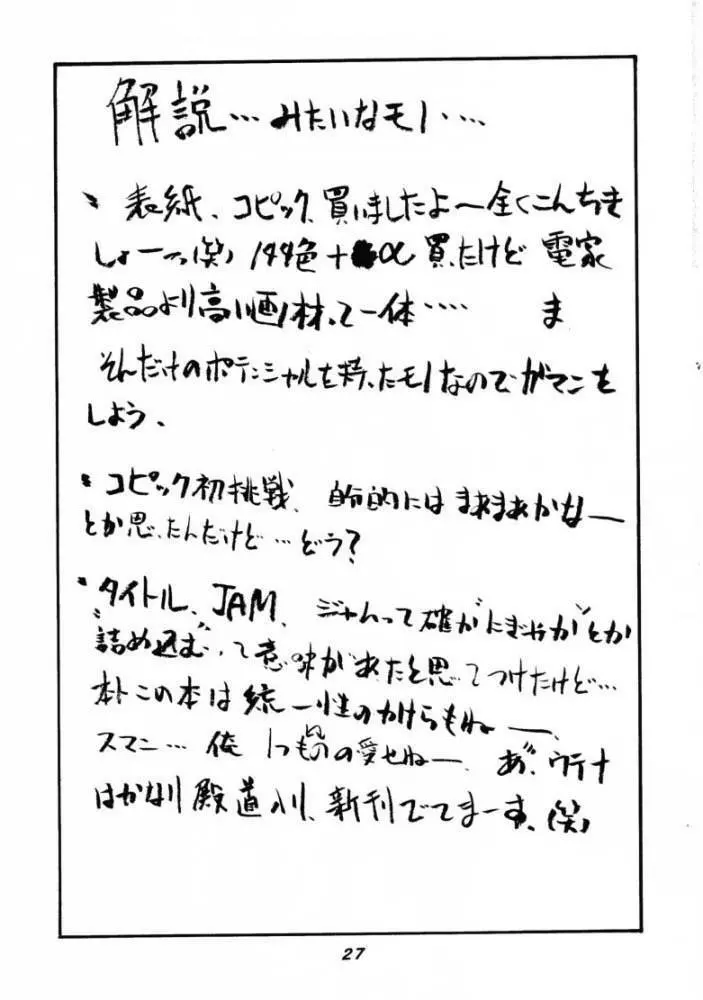 解説…みたいなモノ‥‥
・表紙、コピック、買いましたよ〜全くこんちき
しょーっ(笑) 144色+α買ったけど 電家
製品より高い画材って一体‥‥ ま
そんだけのポテンシャルを持ったモノなのでガマンを
しよう、
・コピック初挑戦、自分的にはまあまあかなー
とか思ったんだけど…どう?
・タイトル、JAM、ジャムって確か"にぎやか"とか
"詰め込む"って意味があったと思ってつけたけど…
本トこの本は統一性のかけらもねー、
スマン… 俺 いつもの
せねー、あ"、ウテナ
はかなり 殿道入り、新刊でてまーす、(笑)
27